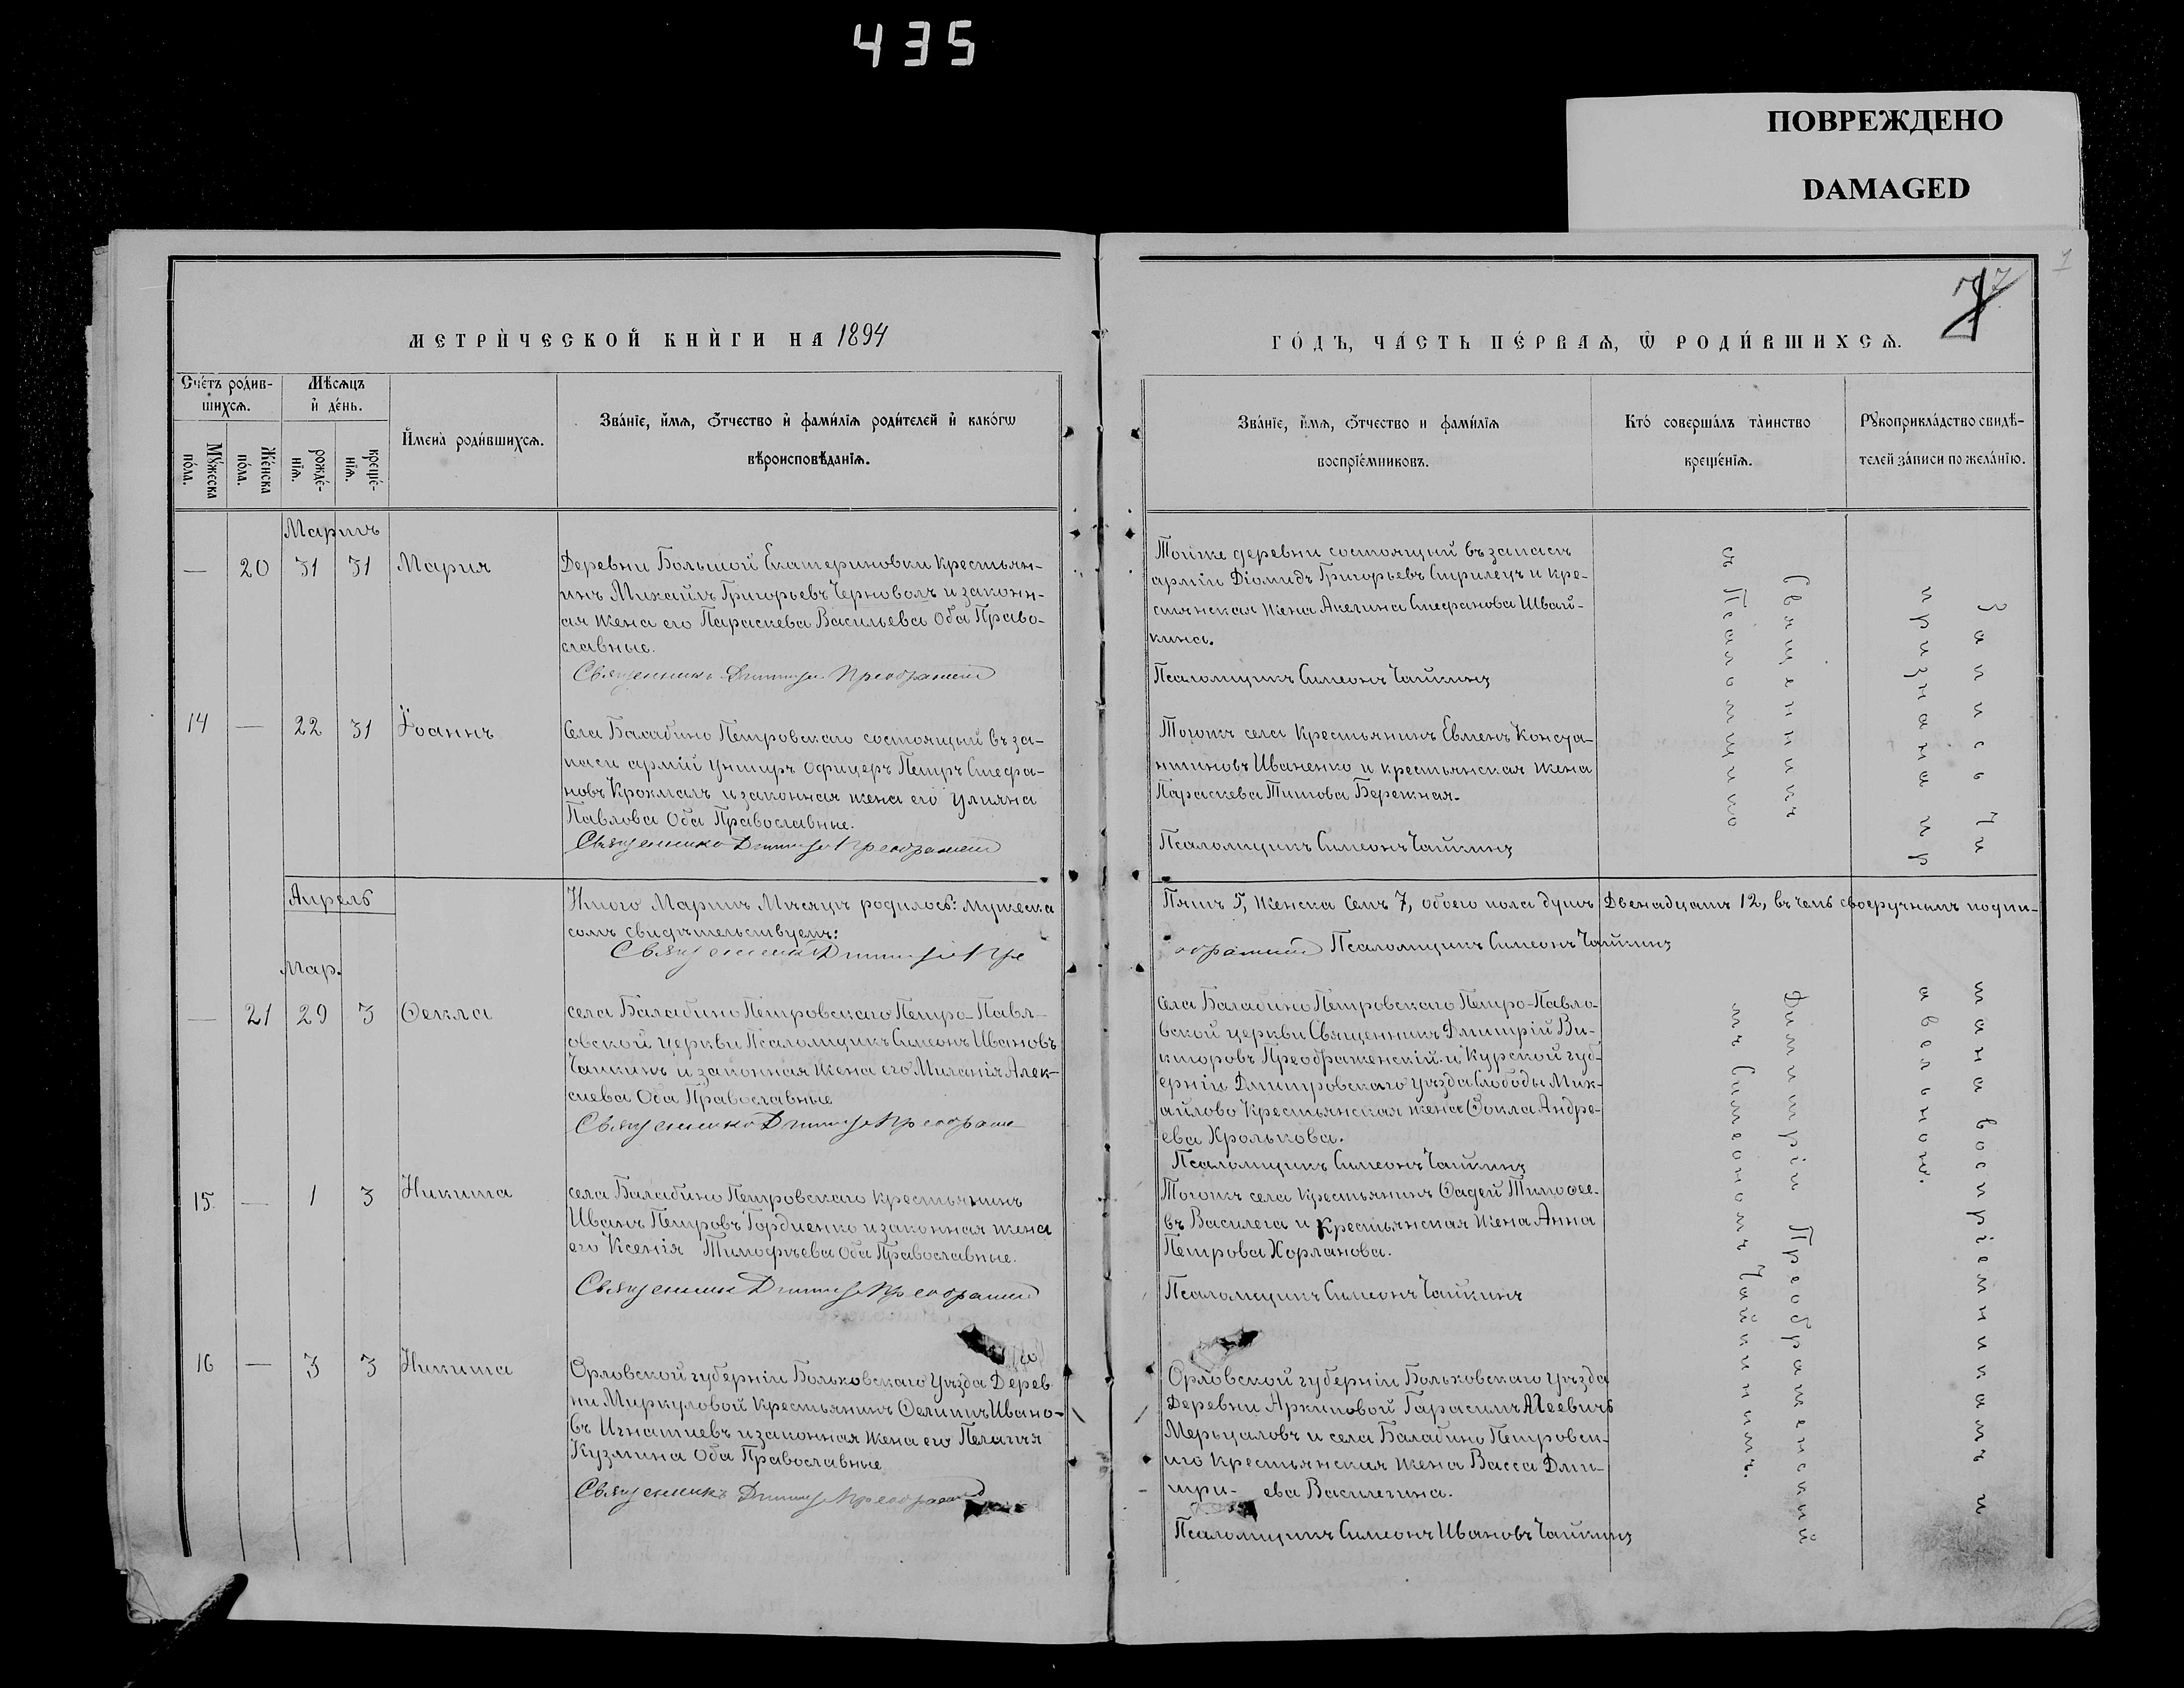 435
ПОВРЕЖДЕНО
DAMAGED
7
МЕТРИ́ЧЕСКОЙ КНИ́ГИ НА 1894
ГО́ДЪ, ЧА́СТЬ ПЕ́РВАѦ, Ѡ РОДИ́ВШИХСѦ.
Сче́тъ роди́в-
шихсѧ.
Мꙋ́жеска
по́ла.
Же́нска
по́ла.
Мѣ́сѧцъ
и҆ де́нь.
рожде́-
нїѧ.
креще́-
нїѧ.
И҆мена̀ роди́вшихсѧ.
Зва́нїе, и҆́мѧ, ѻ҆́тчество и҆ фами́лїѧ роди́телей и҆ како́гѡ
вѣроисповѣ́данїѧ.
Зва́нїе, и҆́мѧ, ѻ҆́тчество и фами́лїѧ
воспрїе́мниковъ.
Кто̀ соверша́лъ та́инство
креще́нїѧ.
Рꙋкоприкла́дство свидѣ́-
телей за́писи по жела́нїю.
Мартъ
— 20 31 31 Мария
Деревни Большой Екатериновки Крестьян-
инъ Михаилъ Григорьевъ Черноволъ и законн-
ая жена его Параскева Васильева Оба Право-
славные.
Священникъ Димитрій Преображенскій
Тойже деревни состоящий въ запасѣ
арміи Діомидъ Григорьевъ Стрилецъ и кре-
стьянская жена Акелина Стефанова Швай-
кина.
Псаломщикъ Симеонъ Чайкинъ
14 — 22 31 Іоаннъ
Села Балабино Петровскаго состоящий въ за-
паси армій унтиръ офицеръ Петръ Стефа-
новъ Крохмаль и законная жена его Улияна
Павлова Оба Православные.
Священникъ Димитрій Преображенскій
Тогожъ села Крестьянинъ Евменъ Конста-
нтиновъ Иваненко и крестьянская жена
Параскева Титова Бережная.
Псаломщикъ Симеонъ Чайкинъ
Апрель
Итого Мартъ Мисяцъ родилось: мужеска
Пять 5, женска Семь 7, обоего пола душъ Двенадцать 12, въ чемъ своеручнымъ подпи-
сомъ свидѣтельствуемъ:
Священникъ Димитрій Пре
ображенскій Псаломщикъ Симеонъ Чайкинъ
Мар.
— 21 29 3 Ѳекла
села Балабино Петровскаго Петро-Павл-
овской церкви Псаломщикъ Симеонъ Ивановъ
Чайкинъ и законная жена его Миланія Алек-
сиева Оба Православные
Священникъ Димитрій Преображе
Села Балабино Петровскаго Петро-Павло-
вской церкви Священникъ Дмитрій Ви-
кторовъ Преображенскій и Курской губ-
ерніи Дмитровскаго уѣзда Слободы Мих-
айлово Крестьянская жена Ѳокла Андре-
ева Хролькова.
Псаломщикъ Симеонъ Чайкинъ
15 — 1 3 Никита
села Балабино Петровскаго крестьянинъ
Иванъ Петровъ Гордиенко и законная жена
его Ксенія Тимофѣева Оба Православные.
Священникъ Димитрій Преображенскій
Тогожъ села Крестьянинъ Ѳадей Тимоѳее-
въ Василега и крестьянская жена Анна
Петрова Харланова.
Псаломщикъ Симеонъ Чайкинъ
16 — 3 3 Никита
Орловской губерніи Больховскаго Уѣзда Дерев
ни Миркуловой Крестьянинъ Ѳелипъ Ивано-
въ Игнатиевъ и законная жена его Пелагия
Кузмина Оба Православные
Священникъ Димитрій Преображенскій
Орловской губерніи Больховскаго уѣзда
Деревни Архиповой Гарасимъ Агеевичъ
Мерьцаловъ и села Балабино Петровск-
аго крестьянская жена Васса Дми-
три- ева Василегина.
Псаломщикъ Симеонъ Ивановъ Чайкинъ
Священникъ Димитрій Преображенский
съ Псаломщикомъ Симеономъ Чайкинымъ.
Запись чи тана восприемникамъ и
признана пр авельной.